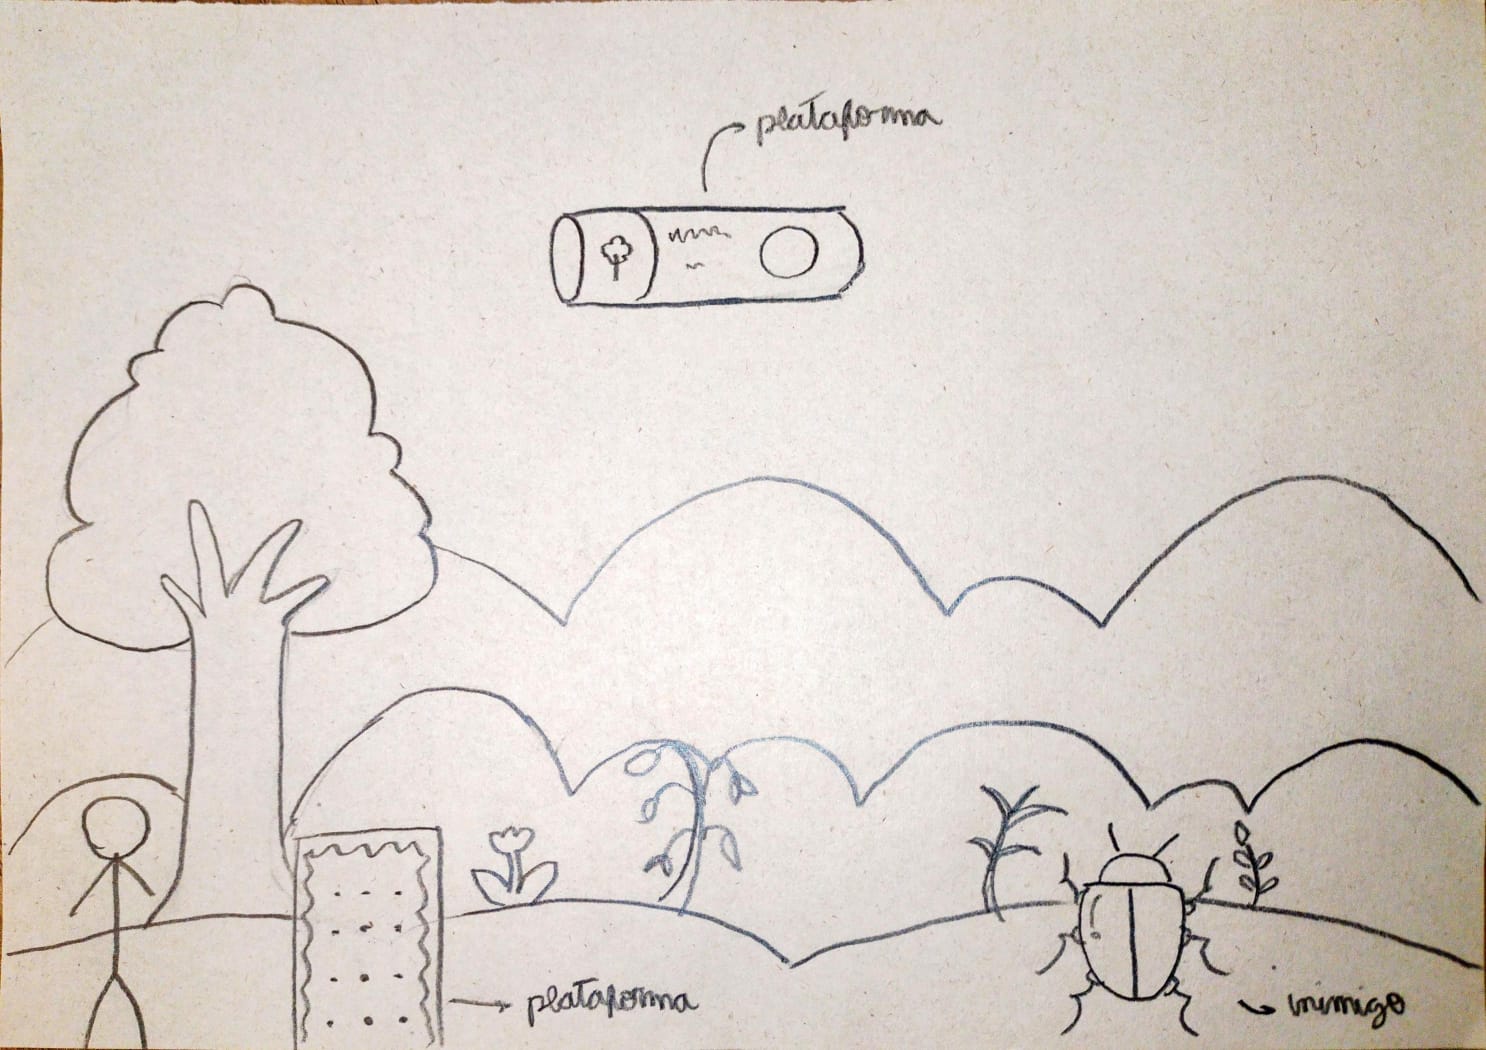 plataforma
plataforma
inimigo